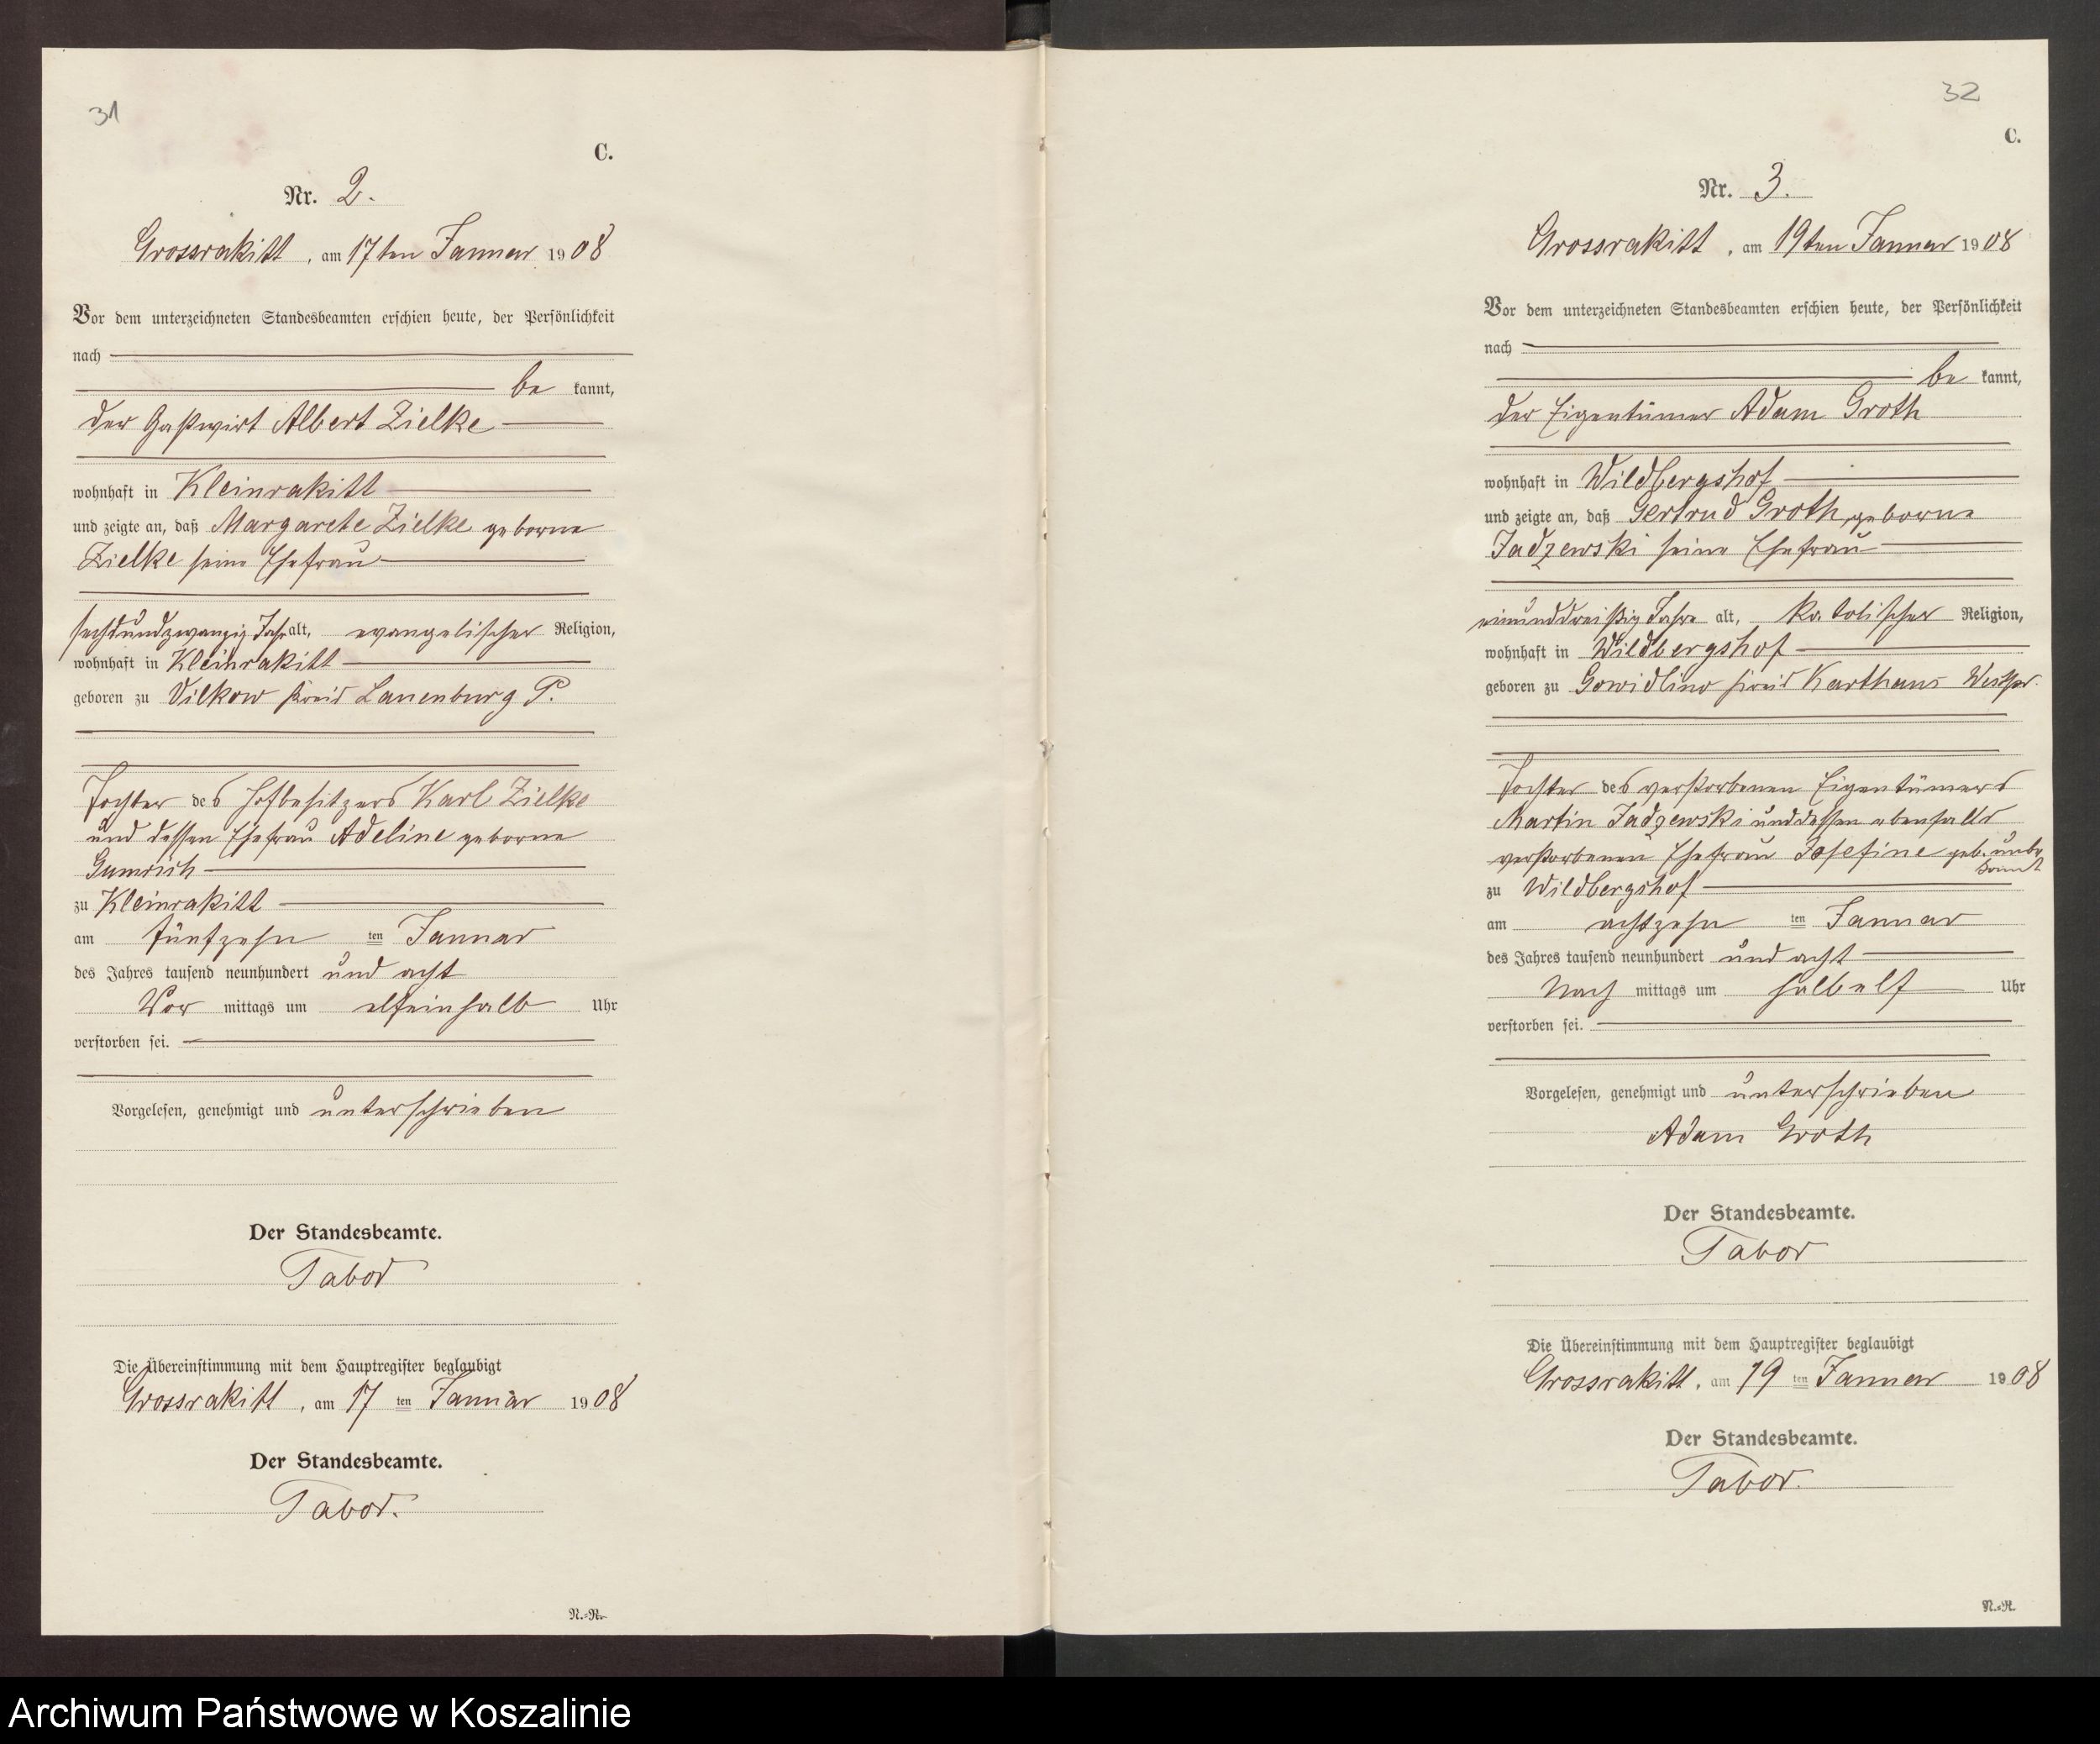 31
C.
Nr. 2.
Grossrakitt, am 17ten Januar 1908
Vor dem unterzeichneten Standesbeamten erschien heute, der Persönlichkeit
nach
be kannt,
der Gastwirt Albert Zielke
wohnhaft in Kleinrakitt
und zeigte an, daß Margarete Zielke geborne
Zielke seine Ehefrau
sechsundzwanzig Jahr alt, evangelischer Religion,
wohnhaft in Kleinrakitt
geboren zu Vilkow Kreis Lauenburg P.
Tochter des Hofbesitzers Karl Zielke
und dessen Ehefrau Adeline geborne
zu Kleinrakitt
am fünfzehn ten Januar
des Jahres tausend neunhundert und acht
Vor mittags um elfeinhalb Uhr
verstorben sei.
Vorgelesen, genehmigt und unterschrieben
Der Standesbeamte.
Tabor
Die Übereinstimmung mit dem Hauptregister beglaubigt
Grossrakitt, am 17 ten Januar 1908
Der Standesbeamte.
Tabor.
N.=R.
32
C.
Nr. 3.
Grossrakitt, am 19ten Januar 1908
Vor dem unterzeichneten Standesbeamten erschien heute, der Persönlichkeit
nach
be kannt,
der Eigentümer Adam Groth
wohnhaft in Wildbergshof
und zeigte an, daß Gertrud Groth, geborne
Jadzewski seine Ehefrau
einunddreißig Jahre alt, katolischer Religion,
wohnhaft in Wildbergshof
geboren zu Gowidlino Kreis Karthaus Westpr.
Tochter des verstorbenen Eigentümers
Martin Jadzewski und dessen ebenfalls
verstorbenen Ehefrau Josefine geb. unbe
kannt
zu Wildbergshof
am achtzehn ten Januar
des Jahres tausend neunhundert und acht
Nach mittags um halb elf Uhr
verstorben sei.
Vorgelesen, genehmigt und unterschrieben
Adam Groth
Der Standesbeamte.
Tabor
Die Übereinstimmung mit dem Hauptregister beglaubigt
Grossrakitt, am 19 ten Januar 1908
Der Standesbeamte.
Tabor.
N.=R.
Archiwum Państwowe w Koszalinie